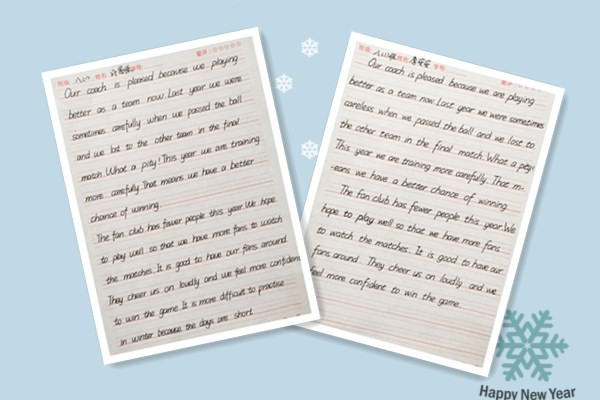 Our coach is pleased because we playing
better as a team now. Last year we were
sometimes carefully when we passed the ball
and we lost to the other team in the final
match. What a pity! This year we are training
more carefully. That means we have a better
chance of winning.
The fan club has fewer people this year. We hope
to play well so that we have more fans to watch
the matches. It is good to have our fans around.
They cheer us on loudly and we feel more confident
to win the game. It is more difficult to practise
in winter because the days are short.
Our coach is pleased because we are playing
better as a team now. Last year we were sometimes
careless when we passed the ball and we lost to
the other team in the final match. What a pity!
This year we are training more carefully. That m-
-eans we have a better chance of winning.
The fan club has fewer people this year. We
hope to play well so that we have more fans
to watch the matches. It is good to have our
fans around. They cheer us on loudly and we
feel more confident to win the game.
Happy New Year